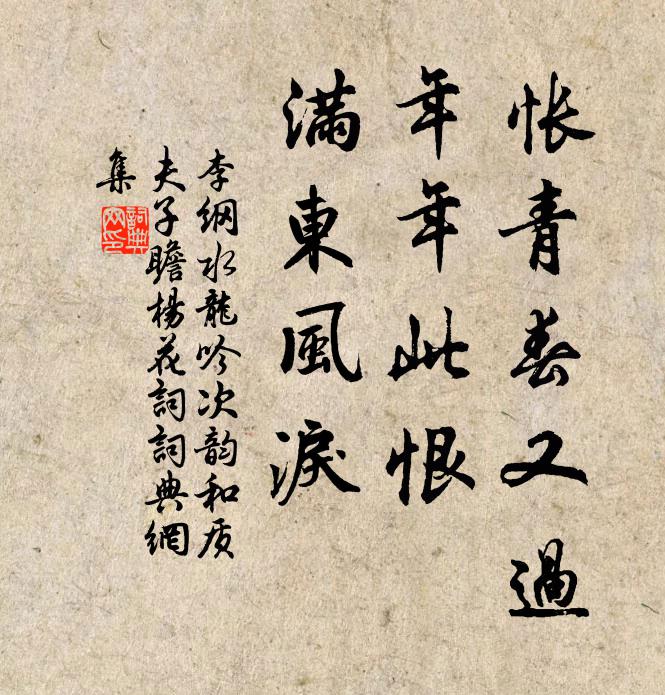 悵青春又過
年年此恨
滿東風淚
李綱水龍吟次韵和质
夫子瞻楊花詞詞典網
集
詞典
网印